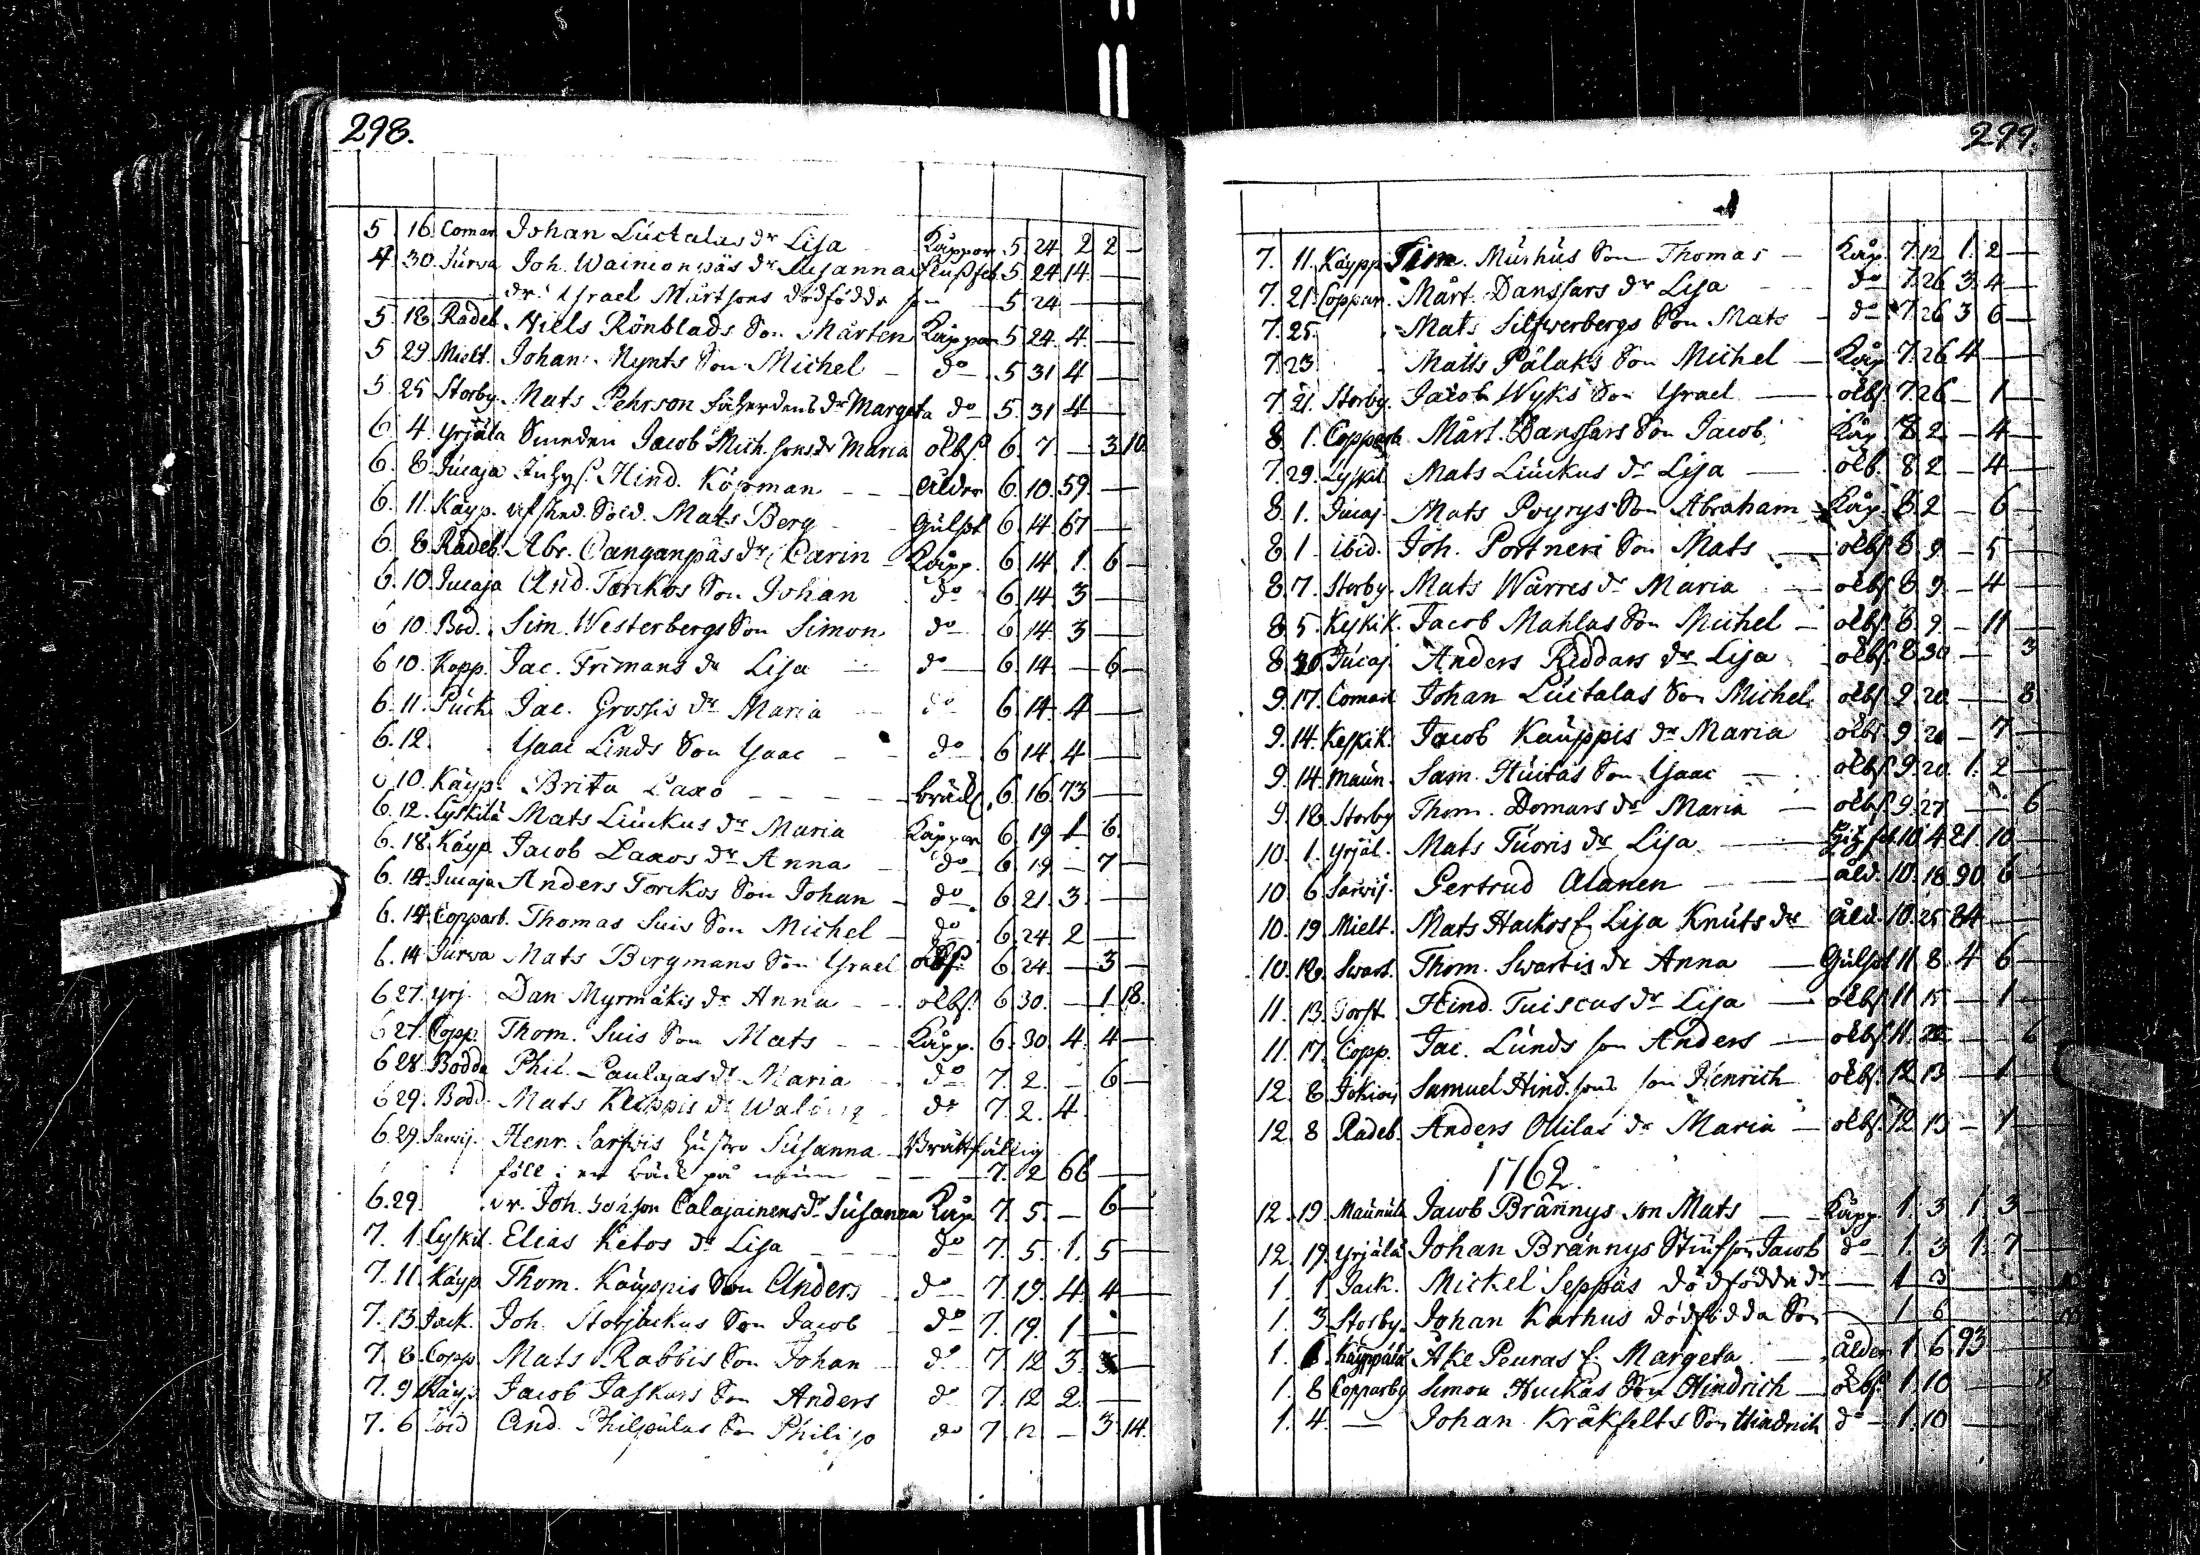 298.
5 16 Coman Johan Luctalas dr Lisa Kåppor 5 24 2 2 —
4 30 Jurva Joh. Wainionpäs dr Susanna 5 24 14 —
dr. Israel Mårtsons dödfödde son 5 24 —
5 18 Radeb. Niels Rönblads Son Mårten Kåppor 5 24 4 —
5 29 Mielt. Johan Nynts Son Michel — do 5 31 4 —
5 25 Storby Mats Pehrson dr Margeta do 5 31 4 —
6 4 Yrjäla Smeden Jacob Mich.sons dr Maria ölbs. 6 7 — 3 10
6. 8 Jucaja Hind. Köpman — — ålder 6 10 59 —
6. 11. Käyp. Sold. Mats Berg Gulsot 6 14 67 —
6. 8 Radeb. Abr. Canganpäs dr Carin Kåpp. 6 14 1 6 —
6. 10. Jucaja And. Torckos Son Johan do 6 14 3 —
6 10. Bod. Sim. Westerbergs Son Simon do 6 14 3 —
6 10. Kopp. Jac. Frimans dr Lisa — do 6 14 — 6 —
6. 11. Puck. Jac. Grossis dr Maria do 6 14 4 —
6. 12. Ysaac Linds Son Ysaac — do 6 14 4 —
6 10. Käyp. Brita Laxo — — — — bråck 6 16 73 —
6. 12. Lyskilä Mats Liuckus dr Maria Kåppor 6 19 1 6
6. 18. Käyp. Jacob Laxos dr Anna — do 6 19 — 7 —
6. 14. Jucaja Anders Torckos Son Johan — do 6 21 3 —
6. 14. Copparb. Thomas Suis Son Michel — do 6 24 2 —
6. 14 Jurva Mats Bergmans Son Ysrael ölbs. 6 24 — 3 —
6 27. Yrj. Dan Myrmäkis dr Anna — ölbs. 6 30 — 1 18.
6 27. Copp. Thom. Suis Son Mats — Kåpp. 6 30 4 4 —
6 28. Bodda Phil. Paulajas dr Maria do 7. 2. — 6 —
6 29. Bodd. Mats Keippis dr Walborg do 7 2. 4
6. 29. Sarvij. Henr. Sarfwis hustro Susanna Brättfällig
föll i en bäck på — — 7. 2 66 —
6. 29. Joh. Johson Calajainens dr Susanna Kåp. 7 5 — 6 —
7. 1. Lyskil. Elias Ketos dr Lisa — — do 7. 5. 1. 5 —
7. 11. Käyp. Thom. Käyppis Son Anders do 7. 19. 4. 4 —
7. 13. Jack. Joh. Storjäckus Son Jacob — do 7. 19. 1 —
7 8. Copp. Mats Rabbis Son Johan do 7 12 3 —
7. 9 Käyp. Jacob Jaskars Son Anders do 7. 12 2. —
7. 6 ibid And. Philpulas Son Philip do 7 12 — 3 14.
299.
7. 11. Käypp. Sim. Murhus Son Thomas — Kåp. 7. 12 1. 2 —
7. 21. Coppar. Mårt. Danssars dr Lisa — do 7. 26 3. 4 —
7. 25. Mats Silfwerbergs Son Mats — do 7. 26 3 6 —
7. 23 Matts Pälaks Son Michel — Kåp. 7. 26 4
7. 21. Storby. Jacob Wyks Son Ysrael — ölbs. 7. 26 — 1 —
8 1. Copparb. Mårt. Danssars Son Jacob Kåp. 8 2 — 4 —
7. 29. Lyskil Mats Liuckus dr Lisa — ölb. 8 2 — 4 —
8 1. Jucaj. Mats Poyrys Son Abraham Kåp. 8 2 — 6 —
8 1 ibid. Joh. Portneri Son Mats — ölbs. 8 9 — 5 —
8 7. Storby. Mats Warres dr Maria — ölbs 8 9 — 4 —
8 5. Keskik. Jacob Mahlas Son Michel — ölbs. 8 9 — 11 —
8. 30. Jucaj Anders Riddars dr Lisa ölbs. 8 30 — 3
9. 17. Coman Johan Luctalas Son Michel ölbs. 9 20 — 8
9. 14. Keskik. Jacob Kauppis dr Maria ölbs. 9 20 — 7 —
9. 14. Maun. Sam. Huitas Son Ysaac — ölbs. 9. 20. 1. 2 —
9 18. Storby Thom. Domars dr Maria — ölbs. 9. 27 — 6
10. 1. Yrjäl. Mats Tuoris dr Lisa 10. 4 21. 10 —
10 6 Sarvij. Gertrud Alanen — åld. 10. 18 90 6 —
10. 19. Mielt. Mats Hackos h. Lisa Knuts dr åld. 10. 25 84 —
10. 18. Swart. Thom. Swartis dr Anna — Gulsot 11 8. 4 6 —
11. 13. Torst. Hind. Tuiscus dr Lisa — ölbs. 11 15 — 1 —
11. 17. Copp. Jac. Lunds son Anders — ölbs. 11. 22 — 6
12. 8 Jokior Samuel Hind.sons son Henrich ölbs. 12 13 — 1 —
12 8 Radeb. Anders Ollilas dr Maria — ölbs. 12 13 — 1 —
1762.
12. 19. Maunula Jacob Brännys son Mats — Kåpp. 1. 3. 1. 3 —
12. 19. Yrjälä Johan Brännys Stiufson Jacob do 1. 3 1. 7 —
1. 1 Jack. Mickel Seppäs dödfödde dr — 1 3
1. 3 Storby. Johan Karhus dödfödda Son — 1 6
1. 6 Käyppälä Åke Peuras h. Margeta — ålder 1 6 93 —
1. 8 Copparby Simon Huckas Son Hindrich — ölbs. 1. 10 — 8
1. 4. — Johan Kråkfelts Son Hindrich do 1. 10 —